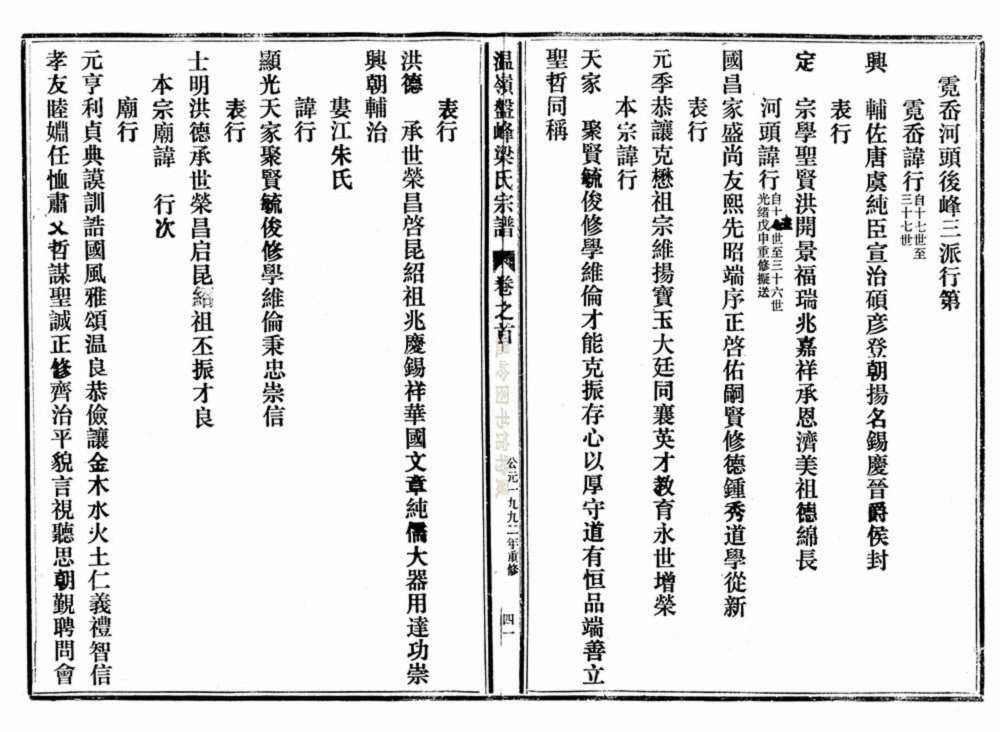 霓岙河頭後峰三派行第
霓岙諱行自十七世至三十七世
興　輔佐唐虞純臣宣治碩彦登朝揚名錫慶晉爵侯封
表行
定　宗學聖賢洪開景福瑞兆嘉祥承恩濟美祖德綿長
河頭諱行自十世至三十六世光緒戊申重修擬送
國昌家盛尚友熙先昭端序正啓佑嗣賢修德鍾秀道學從新
表行
元季恭讓克懋祖宗維揚寶玉大廷同襄英才教育永世增榮
本宗諱行
天家　聚賢毓俊修學維倫才能克振存心以厚守道有恒品端善立
聖哲同稱
温嶺盤峰梁氏宗譜　卷之首　公元一九九二年重修　四一
温岭图书馆特藏
表行
洪德　承世榮昌啓昆紹祖兆慶錫祥華國文章純儒大器用達功崇
興朝輔治
婁江朱氏
諱行
顯光天家聚賢毓俊修學維倫秉忠崇信
表行
士明洪德承世榮昌启昆紹祖丕振才良
本宗廟諱　行次
廟行
元亨利貞典謨訓誥國風雅頌温良恭儉讓金木水火土仁義禮智信
孝友睦婣任恤肅乂哲謀聖誠正修齊治平貌言視聽思朝覲聘問會